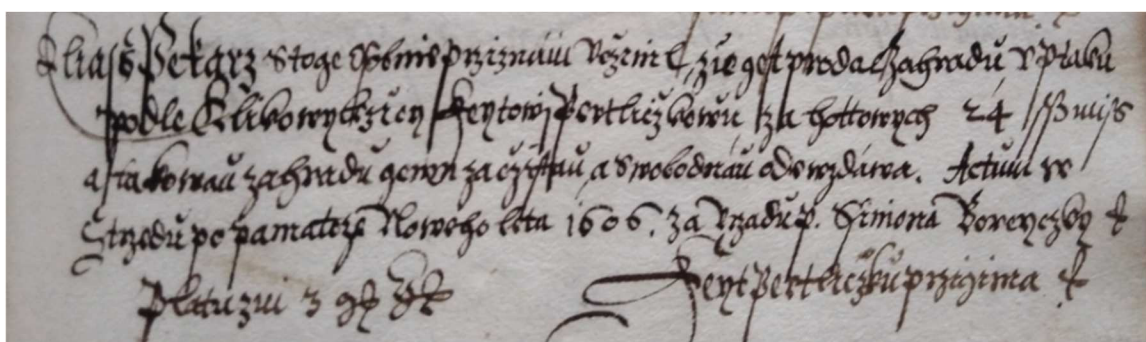 Eliass Pekarz stoge osobnie prziznaw uczinil, zie gest prodal zahradu v ptaku
podle Klikowyckziey Feytowj Pertliczkowu za hottowych 24 ss mis
a takowau zahradu gemu za czystau, a swobodnau odewzdáwa. Actum we
Strzedu po pamatcze Noweho léta 1606. za Vrzadu p. Simona Boreyczky
Platu zni 3 gr
Feyt Pertliczku przigima